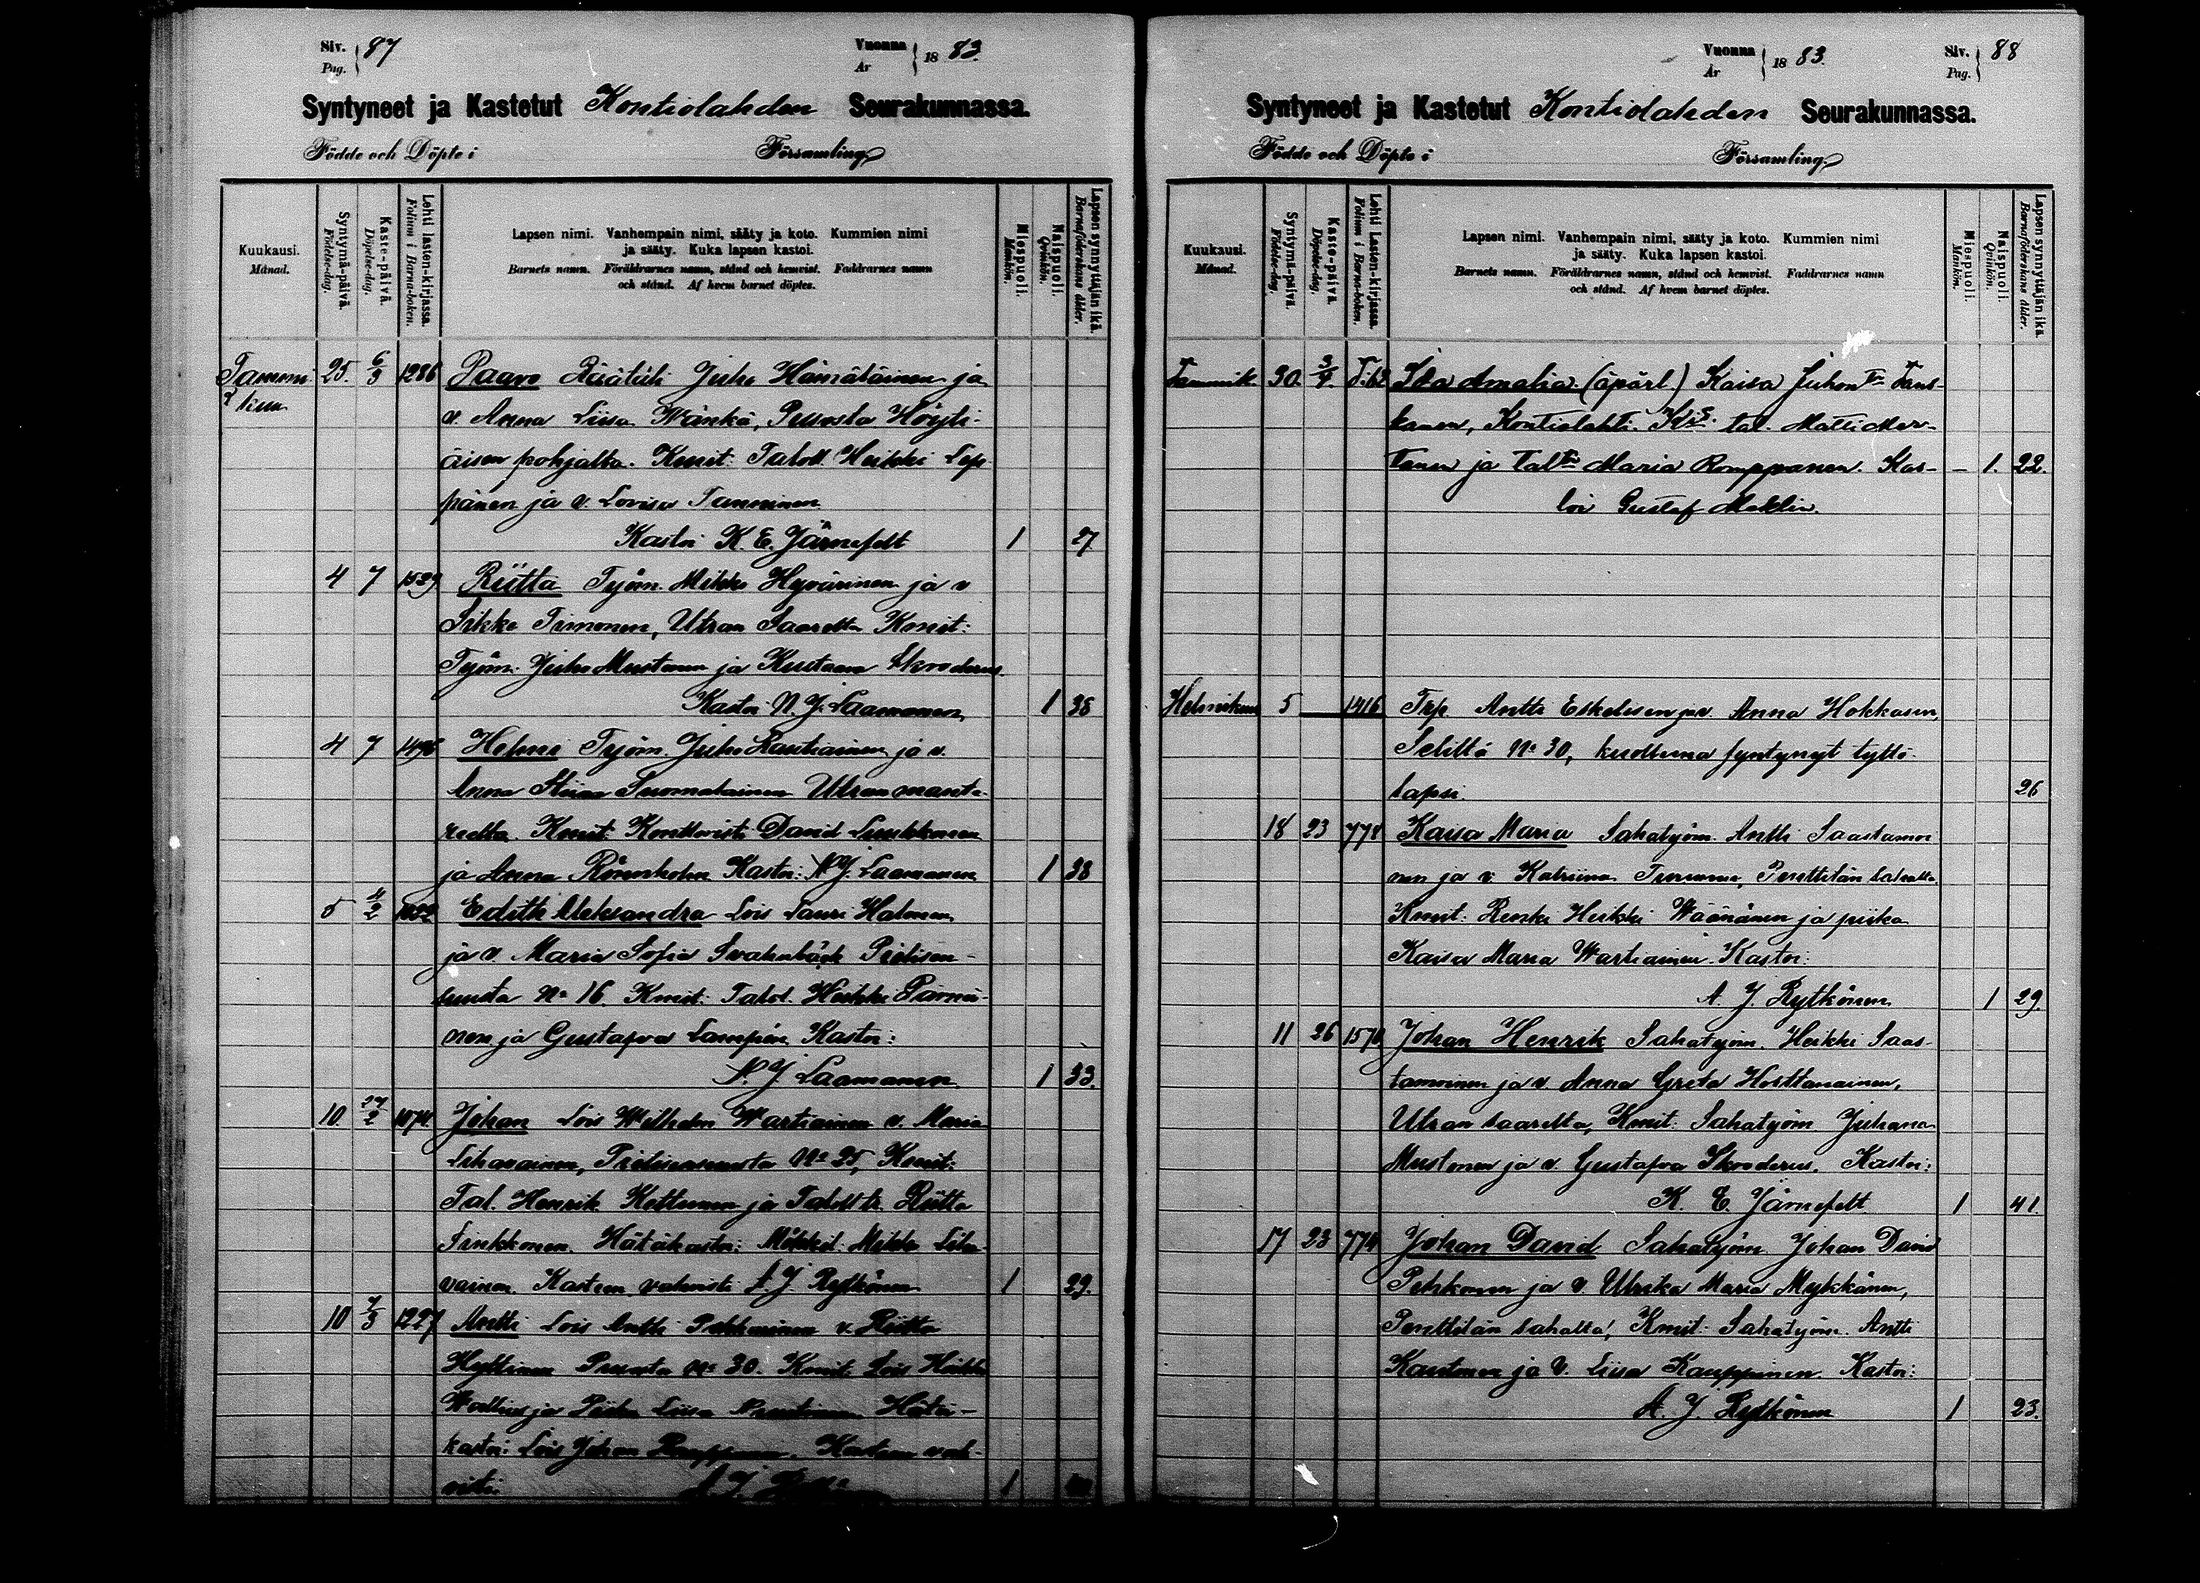 Siv. 87 Vuonna 1883.
Pag. År
Syntyneet ja Kastetut Kontiolahden Seurakunnassa.
Födde och Döpte i Församling
Kuukausi. Månad.
Syntymä-päivä. Födelse-dag.
Kaste-päivä. Döpelse-dag.
Lehti lasten-kirjassa. Folium i Barna-boken.
Lapsen nimi. Vanhempain nimi, sääty ja koto. Kummien nimi
ja sääty. Kuka lapsen kastoi.
Barnets namn. Föräldrarnes namn, stånd och hemvist. Faddrarnes namn
och stånd. Af hvem barnet döptes.
Miespuoli. Mankön.
Naispuoli. Qvinkön.
Lapsen synnyttäjän ikä. Barnaföderskans ålder.
Tammi 25. 6/3 1286 Paavo Räätäli Juho Hämäläinen ja
kuu v. Anna Liisa Wänskä, Puusta Höyti-
äisen pohjalta. Kmit: Taloll. Heikki Lep
pänen ja v. Lovisa Tanninen
Kastoi K. E. Järnefelt 1 27
4 7 1529 Riitta Työm. Mikko Hyvärinen ja v
Timonen, Utran Saarelta Kmit:
Työm. Juho Mustonen ja Kustaava Skroderus.
Kastoi N. J. Laamanen 1 38
4 7 Helmi Työm. Juho Rautiainen ja v.
Anna Stiina Suomalainen Utran
Kmit: David Luukkonen
ja Anna Rönnholm Kastoi: N. J. Laamanen 1 38
5 4/2 Edith Aleksandra Lois Lauri Halonen
ja v. Maria Sofia Svahnbäck Pielisen-
suusta No 16. Kmit: Talol. Heikki
nen ja Gustafva Lampén Kastoi:
N. J. Laamanen 1 33.
10. 27/2 1074 Johan Lois Wilhelm Wartiainen v. Maria
Lihavainen, Pielisensuusta No 25, Kmit:
Tal. Henrik Kettunen ja Riitta
Sinkkonen. Hätäkastoi: Mökkil. Mikko Liha
vainen. Kasteen vahvisti A. J. Rytkönen 1 29.
10 7/3 1227 Antti Lois Antti v. Riitta
No 30. Kmit Lois Heikki
ja Piika Liisa Hätä-
kastoi: Lois Johan Kasteen vah-
visti: A. J. 1
Vuonna 1883. Siv. 88
År Pag.
Syntyneet ja Kastetut Kontiolahden Seurakunnassa.
Födde och Döpte i Församling
Kuukausi. Månad.
Syntymä-päivä. Födelse-dag.
Kaste-päivä. Döpelse-dag.
Lehti Lasten-kirjassa. Folium i Barna-boken.
Lapsen nimi. Vanhempain nimi, sääty ja koto. Kummien nimi
ja sääty. Kuka lapsen kastoi.
Barnets namn. Föräldrarnes namn, stånd och hemvist. Faddrarnes namn
och stånd. Af hvem barnet döptes.
Miespuoli. Mankön.
Naispuoli. Qvinkön.
Lapsen synnyttäjän ikä. Barnaföderskans ålder.
Tammik 30. Ida Amalia. (äpärl.) Kaisa Juhon tr Tans-
kanen, Kontiolahti. tal. Matti Mar-
tanen ja Maria Romppanen. Kas- – 1. 22.
toi Gustaf Meklin.
Helmikuu 5 1416 Antti Eskelisen ja v. Anna Hokkasen,
Selittä No 30, kuolleena syntynyt tyttö-
lapsi. 26
18 23 774 Kaisa Maria Sahatyöm. Antti Saastamoi
nen ja v. Katriina Turunen, Penttilän sahalta.
Kmit: Renki Heikki Wäänänen ja piika
Kaisa Maria Wartiainen. Kastoi:
A. J. Rytkönen 1 29.
11 26 1570 Johan Henrik Sahatyöm. Heikki Saas-
tamoinen ja v. Anna Greta Hosttanainen,
Utran saarelta, Kmit: Sahatyöm Juhana
Mustonen ja v. Gustafva Skroderus. Kastoi:
K. E. Järnefelt 1 41.
17 23 774 Johan David Sahatyöm Johan David
Pehkonen ja v. Ulrika Maria Mykkänen,
Penttilän sahalta, Kmit: Sahatyöm. Antti
Kautonen ja v. Liisa Kauppinen. Kastoi:
A. J. Rytkönen 1 23.